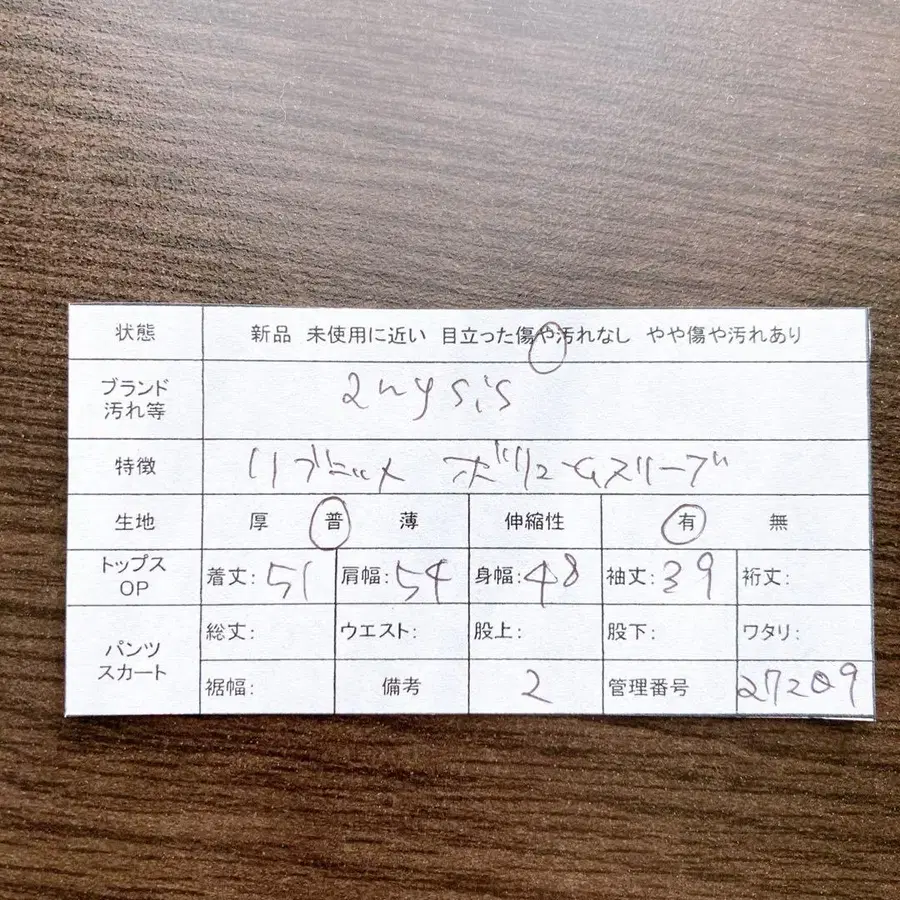 状態 新品 未使用に近い 目立った傷や汚れなし やや傷や汚れあり
ブランド
汚れ等 anysis
特徴 リブニット ボリュームスリーブ
生地 厚 普 薄 伸縮性 有 無
トップス
OP 着丈:51 肩幅:54 身幅:48 袖丈:39 裄丈:
パンツ
スカート 総丈: ウエスト: 股上: 股下: ワタリ:
裾幅: 備考 2 管理番号 27209